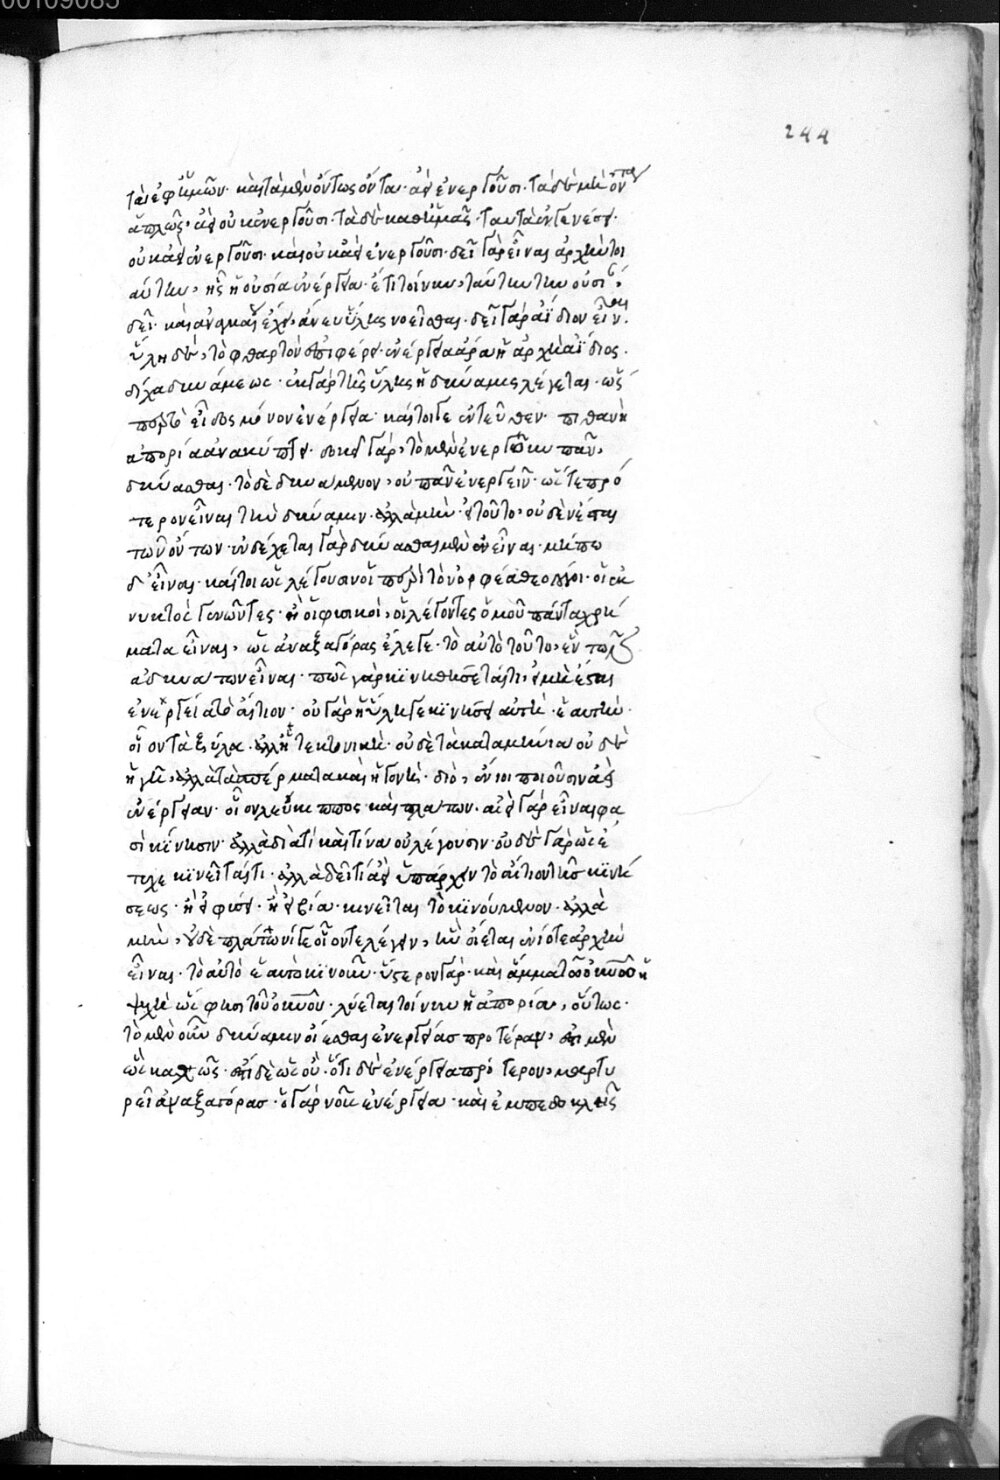 00109085
244
τὰ ἐφ' ἡμῶν· καὶ τὰ μὲν ὄντως ὄντα· ἀεὶ ἐνεργοῦσι· τὰ δὲ μὴ ὄντα
ἁπλῶς· ἀεὶ οὐκ ἐνεργοῦσι· τὰ δὲ καθ' ἡμᾶς· ταυτὰ ἐν γενέσει·
οὐκ ἀεὶ ἐνεργοῦσι· καὶ οὐκ ἀεὶ ἐνεργοῦσι· δεῖ γὰρ εἶναι ἀρχὴν τοι
αύτην, ἧς ἡ οὐσία ἐνέργεια· ἔτι τοίνυν, ταύτην τὴν οὐσί
δεῖ· καὶ ἀνάγκη ἔχει, ἄνευ ὕλης νοεῖσθαι· δεῖ γὰρ ἀΐδιον εἶν
ὕλη δὲ, τὸ φθαρτὸν ἐπιφέρει· ἐνέργεια ἄρα ἡ ἀρχὴ ἀΐδιος·
δίχα δυνάμεως· ἐκ γὰρ τῆς ὕλης ἡ δύναμις λέγεται· ὡς
περὶ τὸ εἶδος μόνον ἐνέργεια· καίτοιγε ἐντεῦθεν· πιθανὴ
ἀπορία ἀνακύπτει· δοκεῖ γὰρ, τὸ μὲν ἐνεργοῦν πᾶν,
δύνασθαι· τὸ δὲ δυνάμενον, οὐ πᾶν ἐνεργεῖν· ὥστε πρό
τερον εἶναι τὴν δύναμιν· ἀλλὰ μὴν· εἰ τοῦτο, οὐδὲν ἔσται
τῶν ὄντων· ἐνδέχεται γὰρ δύνασθαι μὲν εἶναι· μήπω
δ' εἶναι· καίτοι ὡς λέγουσιν οἱ περὶ τὸν ὀρφέα θεολόγοι· οἱ ἐκ
νυκτὸς γεννῶντες· ἢ οἱ φυσικοὶ, οἱ λέγοντες ὁμοῦ πάντα χρή
ματα εἶναι, ὡς ἀναξαγόρας ἔλεγε· τὸ αὐτὸ τοῦτο, ἓν τῶν
ἀδυνάτων εἶναι· πῶς γὰρ κινηθήσεται τι, εἰ μὴ ἔσται
ἐνεργείᾳ τὸ αἴτιον· οὐ γὰρ ἡ ὕλη γε κινήσει αὐτὴ ἑαυτὴν·
οἷον τὰ ξύλα· ἀλλ' ἡ τεκτονικὴ· οὐδὲ τὰ καταμήνια οὐδὲ
ἡ γῆ, ἀλλὰ τὰ σπέρματα καὶ ἡ γονὴ· διὸ, ἔνιοι ποιοῦσιν ἀεὶ
ἐνέργειαν· οἷον λεύκιππος καὶ πλάτων· αἰεὶ γὰρ εἶναι φα
σὶ κίνησιν· ἀλλὰ διὰ τί καὶ τίνα οὐ λέγουσιν· οὐδὲ γὰρ ὡς ἔ
τυχε κινεῖται τι· ἀλλὰ δεῖ τι ἀεὶ ὑπάρχειν τὸ αἴτιον τῆς κινή
σεως· ἢ φύσει· ἢ βίᾳ· κινεῖται τὸ κινούμενον· ἀλλὰ
μὴν, οὐδὲ πλάτωνί γε οἷόν τε λέγειν, ἣν οἴεται ἐνίοτε ἀρχὴν
εἶναι· τὸ αὐτὸ ἑαυτὸ κινοῦν· ὕστερον γὰρ· καὶ ἅμα τῷ οὐρανῷ ἡ
ψυχὴ ὥς φησι τοῦ οὐρανοῦ· λύεται τοίνυν ἡ ἀπορία, οὕτως·
τὸ μὲν οὖν δύναμιν οἴεσθαι ἐνεργείας προτέραν, ἔστι μὲν
ὡς καλῶς· ἔστι δὲ ὡς οὔ· ὅτι δὲ ἐνέργεια πρότερον, μαρτυ
ρεῖ ἀναξαγόρας· ὁ γὰρ νοῦς ἐνέργεια· καὶ ἐμπεδοκλῆς